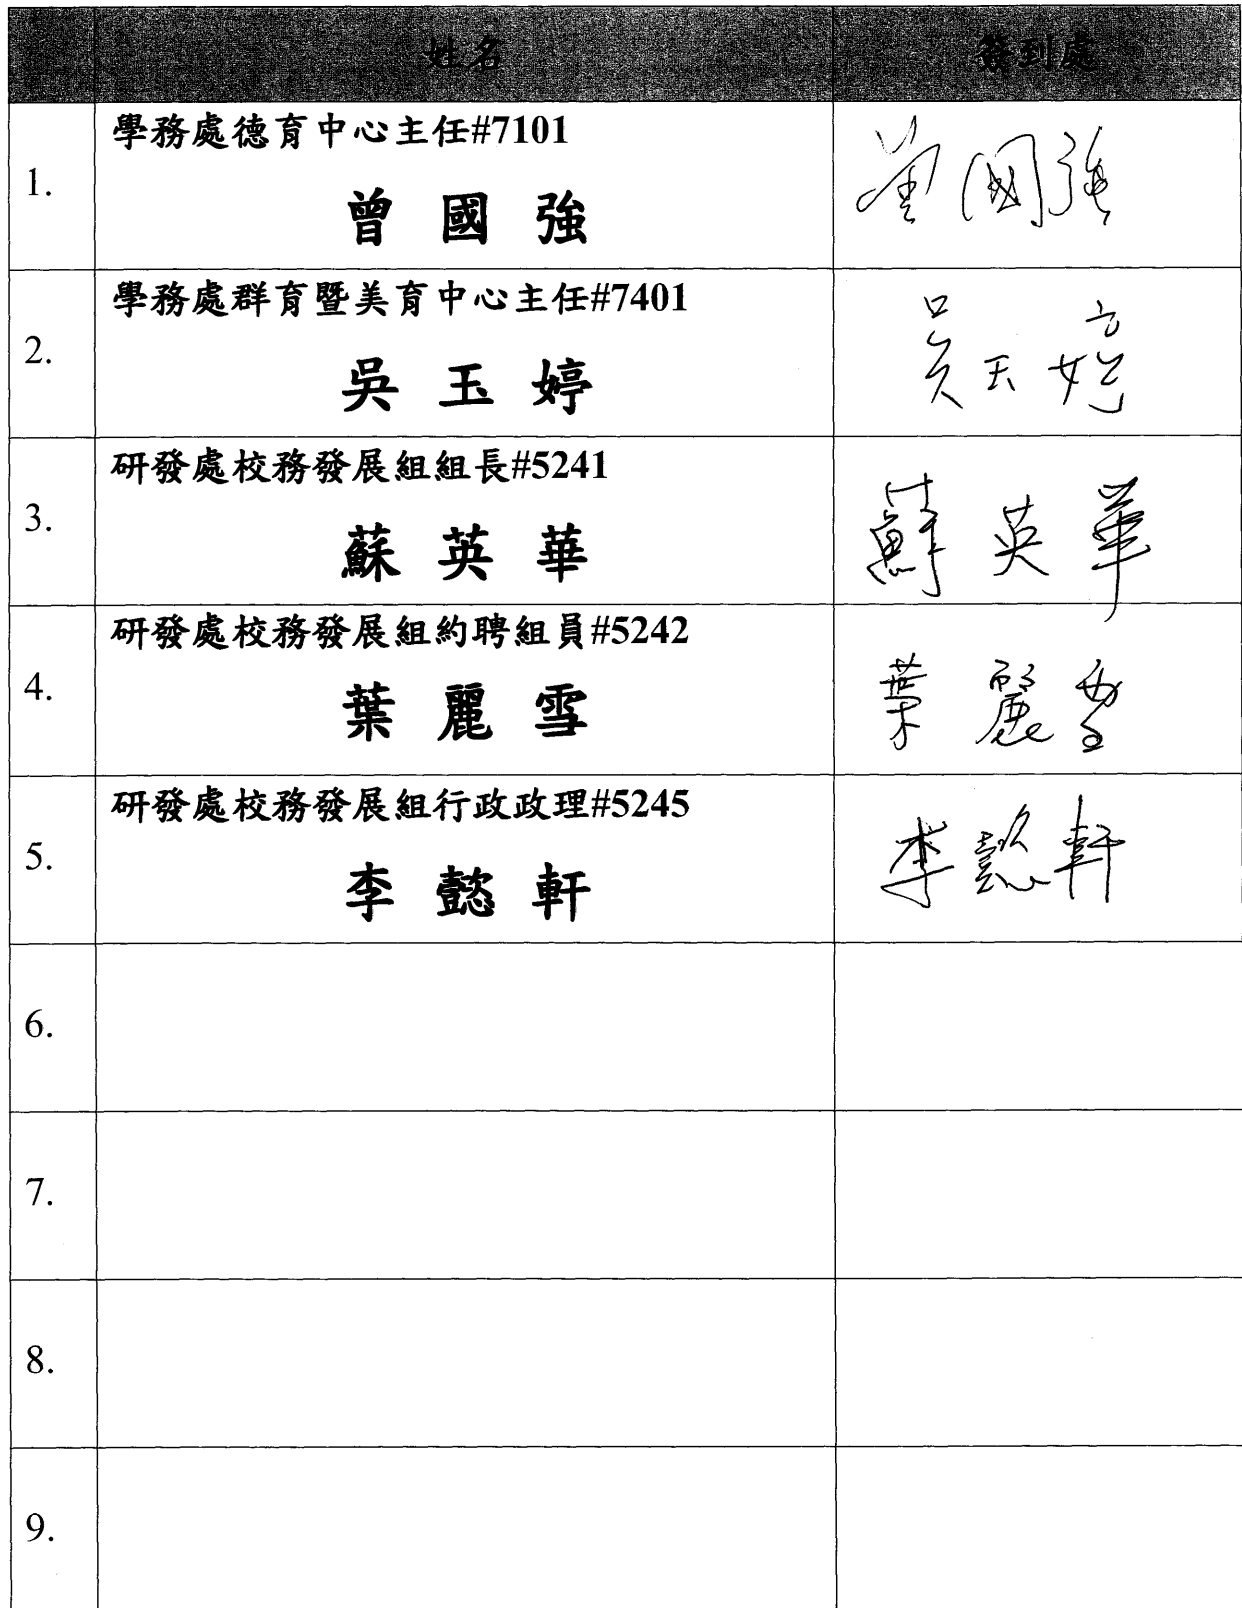 姓名 簽到處
1. 學務處德育中心主任#7101
曾國強 曾國強
2. 學務處群育暨美育中心主任#7401
吳玉婷 吳玉婷
3. 研發處校務發展組組長#5241
蘇英華 蘇英華
4. 研發處校務發展組約聘組員#5242
葉麗雪 葉麗雪
5. 研發處校務發展組行政政理#5245
李懿軒 李懿軒
6.
7.
8.
9.